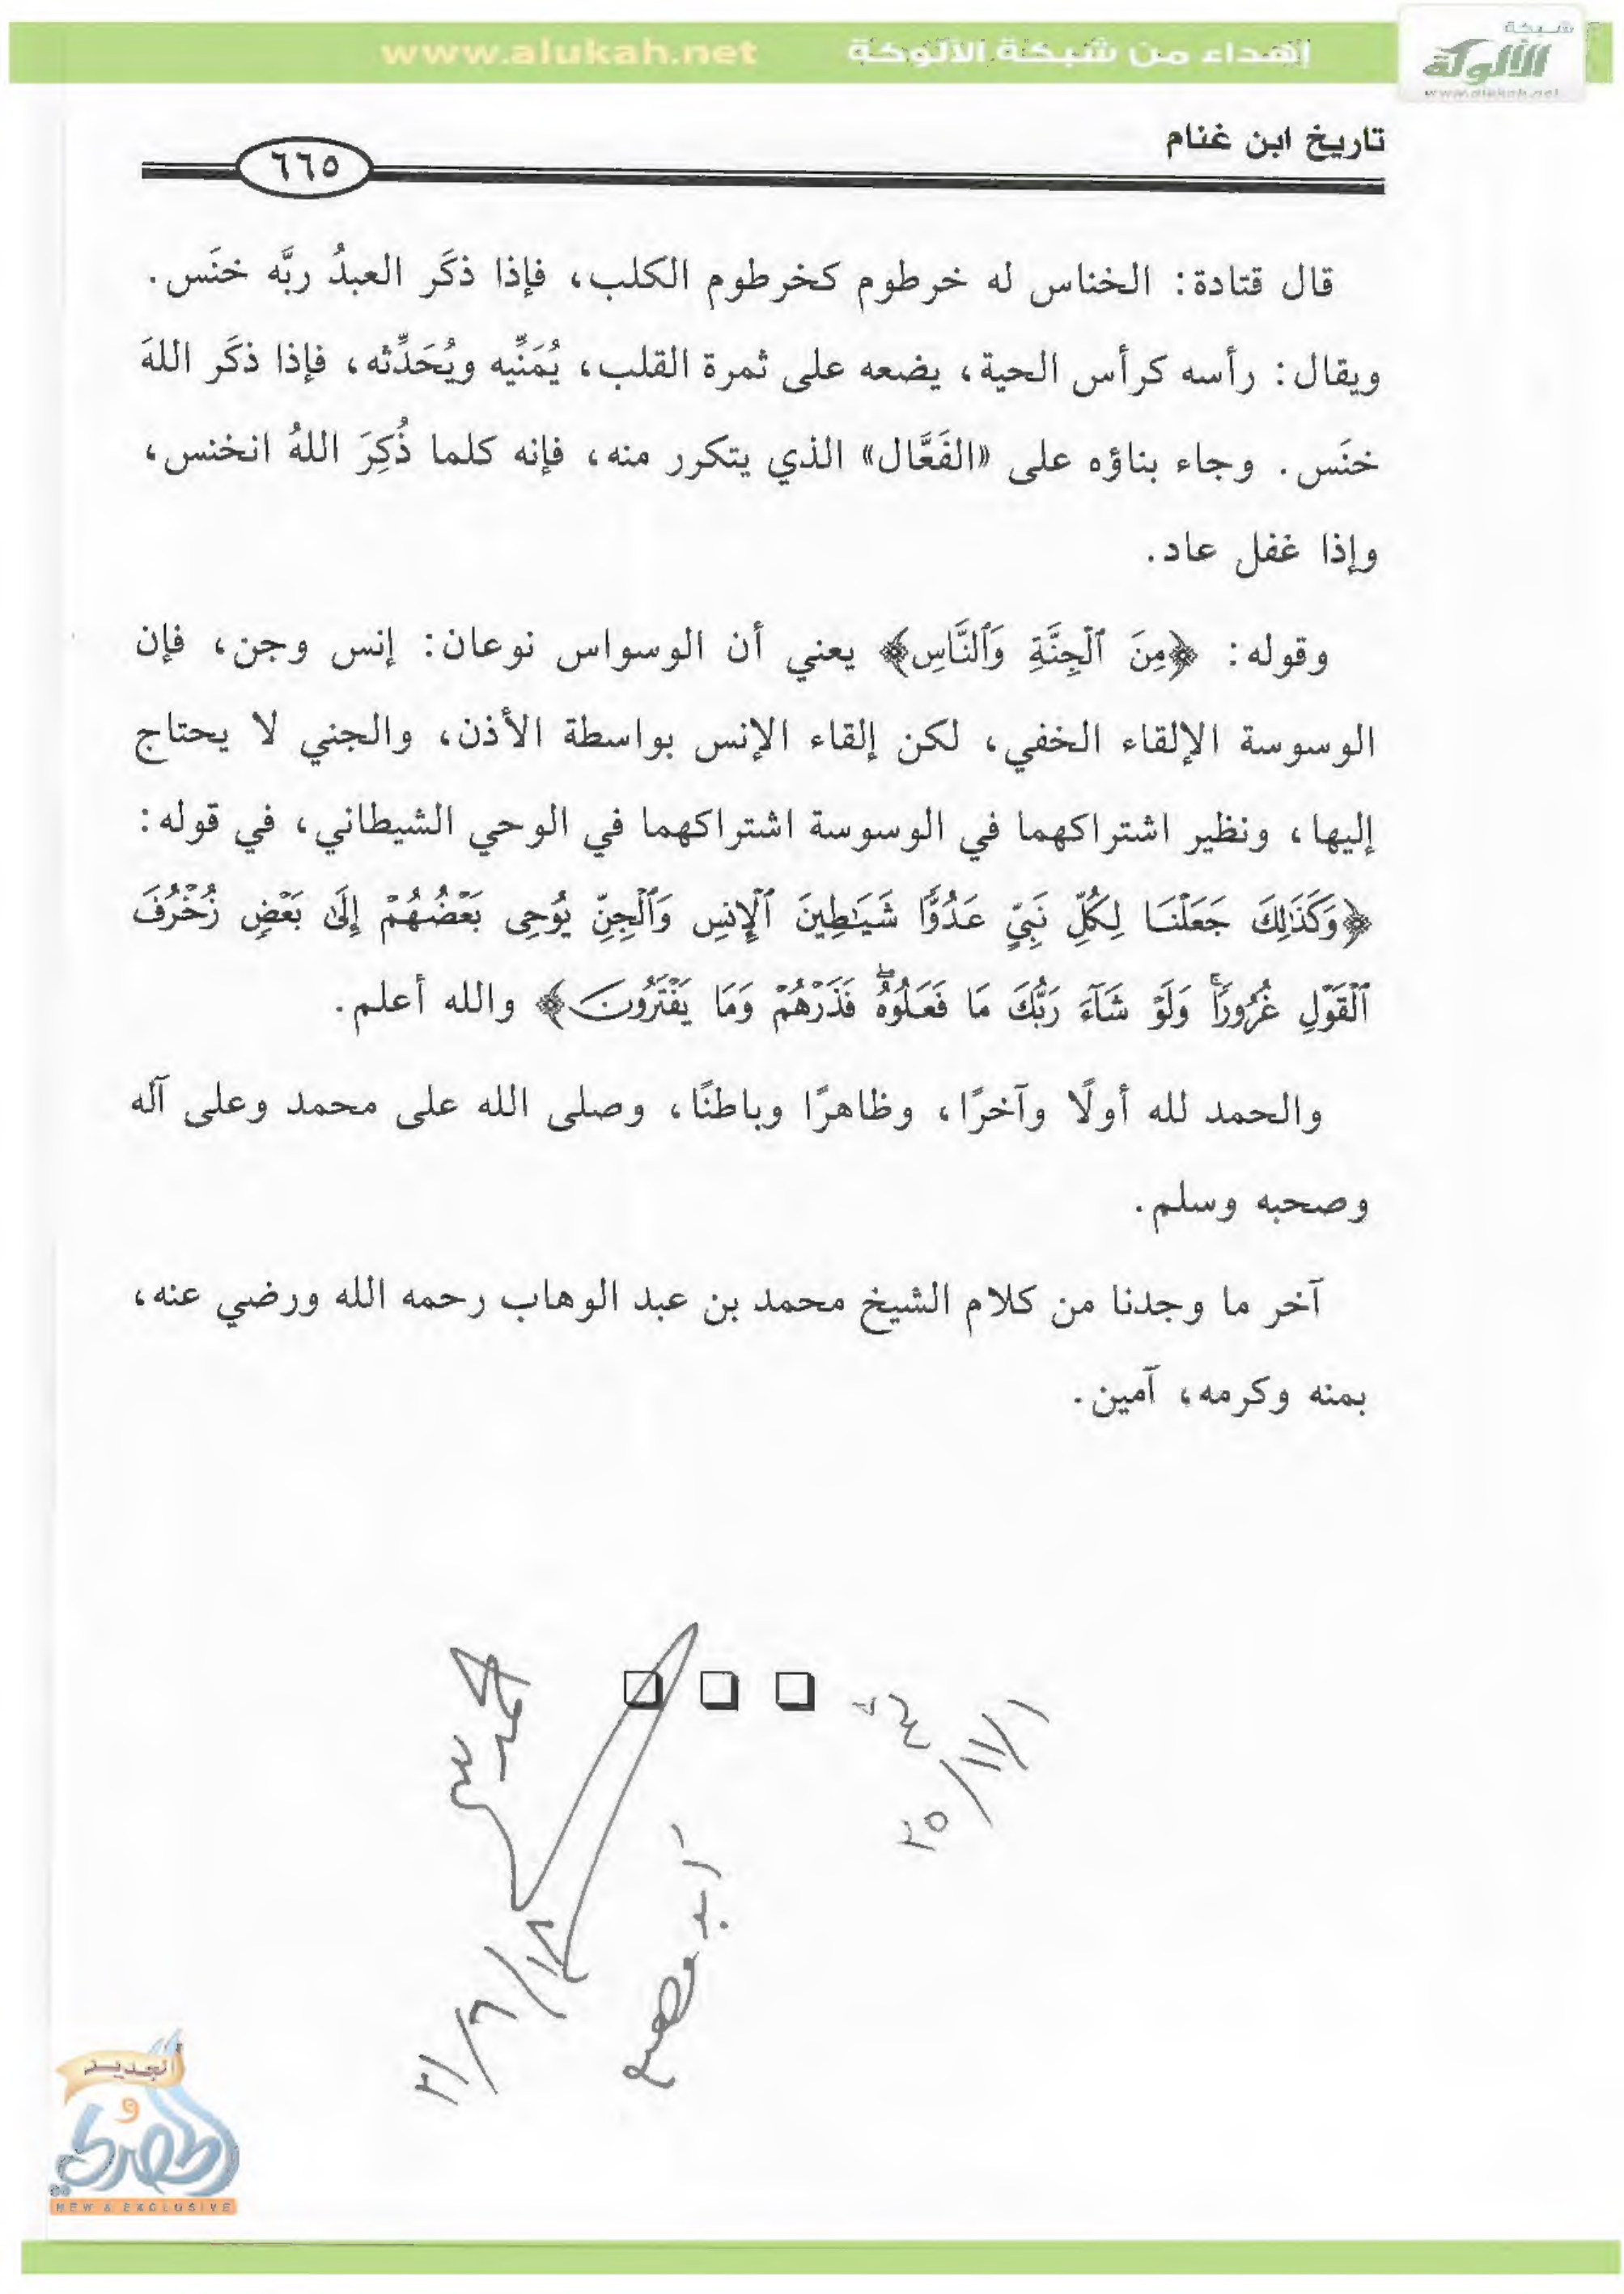 شبكة
الألوكة
www.alukah.net
إهداء من شبكة الألوكة www.alukah.net
تاريخ ابن غنام
٦٦٥
قال قتادة: الخناس له خرطوم كخرطوم الكلب، فإذا ذكَر العبدُ ربَّه خنَس.
ويقال: رأسه كرأس الحية، يضعه على ثمرة القلب، يُمَنِّيه ويُحَدِّثه، فإذا ذكَر اللهَ
خنَس. وجاء بناؤه على «الفَعَّال» الذي يتكرر منه، فإنه كلما ذُكِرَ اللهُ انخنس،
وإذا غفل عاد.
وقوله: ﴿مِنَ ٱلْجِنَّةِ وَٱلنَّاسِ﴾ يعني أن الوسواس نوعان: إنس وجن، فإن
الوسوسة الإلقاء الخفي، لكن إلقاء الإنس بواسطة الأذن، والجني لا يحتاج
إليها، ونظير اشتراكهما في الوسوسة اشتراكهما في الوحي الشيطاني، في قوله:
﴿وَكَذَٰلِكَ جَعَلْنَا لِكُلِّ نَبِيٍّ عَدُوًّا شَيَٰطِينَ ٱلْإِنسِ وَٱلْجِنِّ يُوحِى بَعْضُهُمْ إِلَىٰ بَعْضٍ زُخْرُفَ
ٱلْقَوْلِ غُرُورًا ۚ وَلَوْ شَآءَ رَبُّكَ مَا فَعَلُوهُ ۖ فَذَرْهُمْ وَمَا يَفْتَرُونَ﴾ والله أعلم.
والحمد لله أولًا وآخرًا، وظاهرًا وباطنًا، وصلى الله على محمد وعلى آله
وصحبه وسلم.
آخر ما وجدنا من كلام الشيخ محمد بن عبد الوهاب رحمه الله ورضي عنه،
بمنه وكرمه، آمين.
٢٥/١١/١
٢١/٦/١٨
الجديد
و
الحصري
NEW & EXCLUSIVE